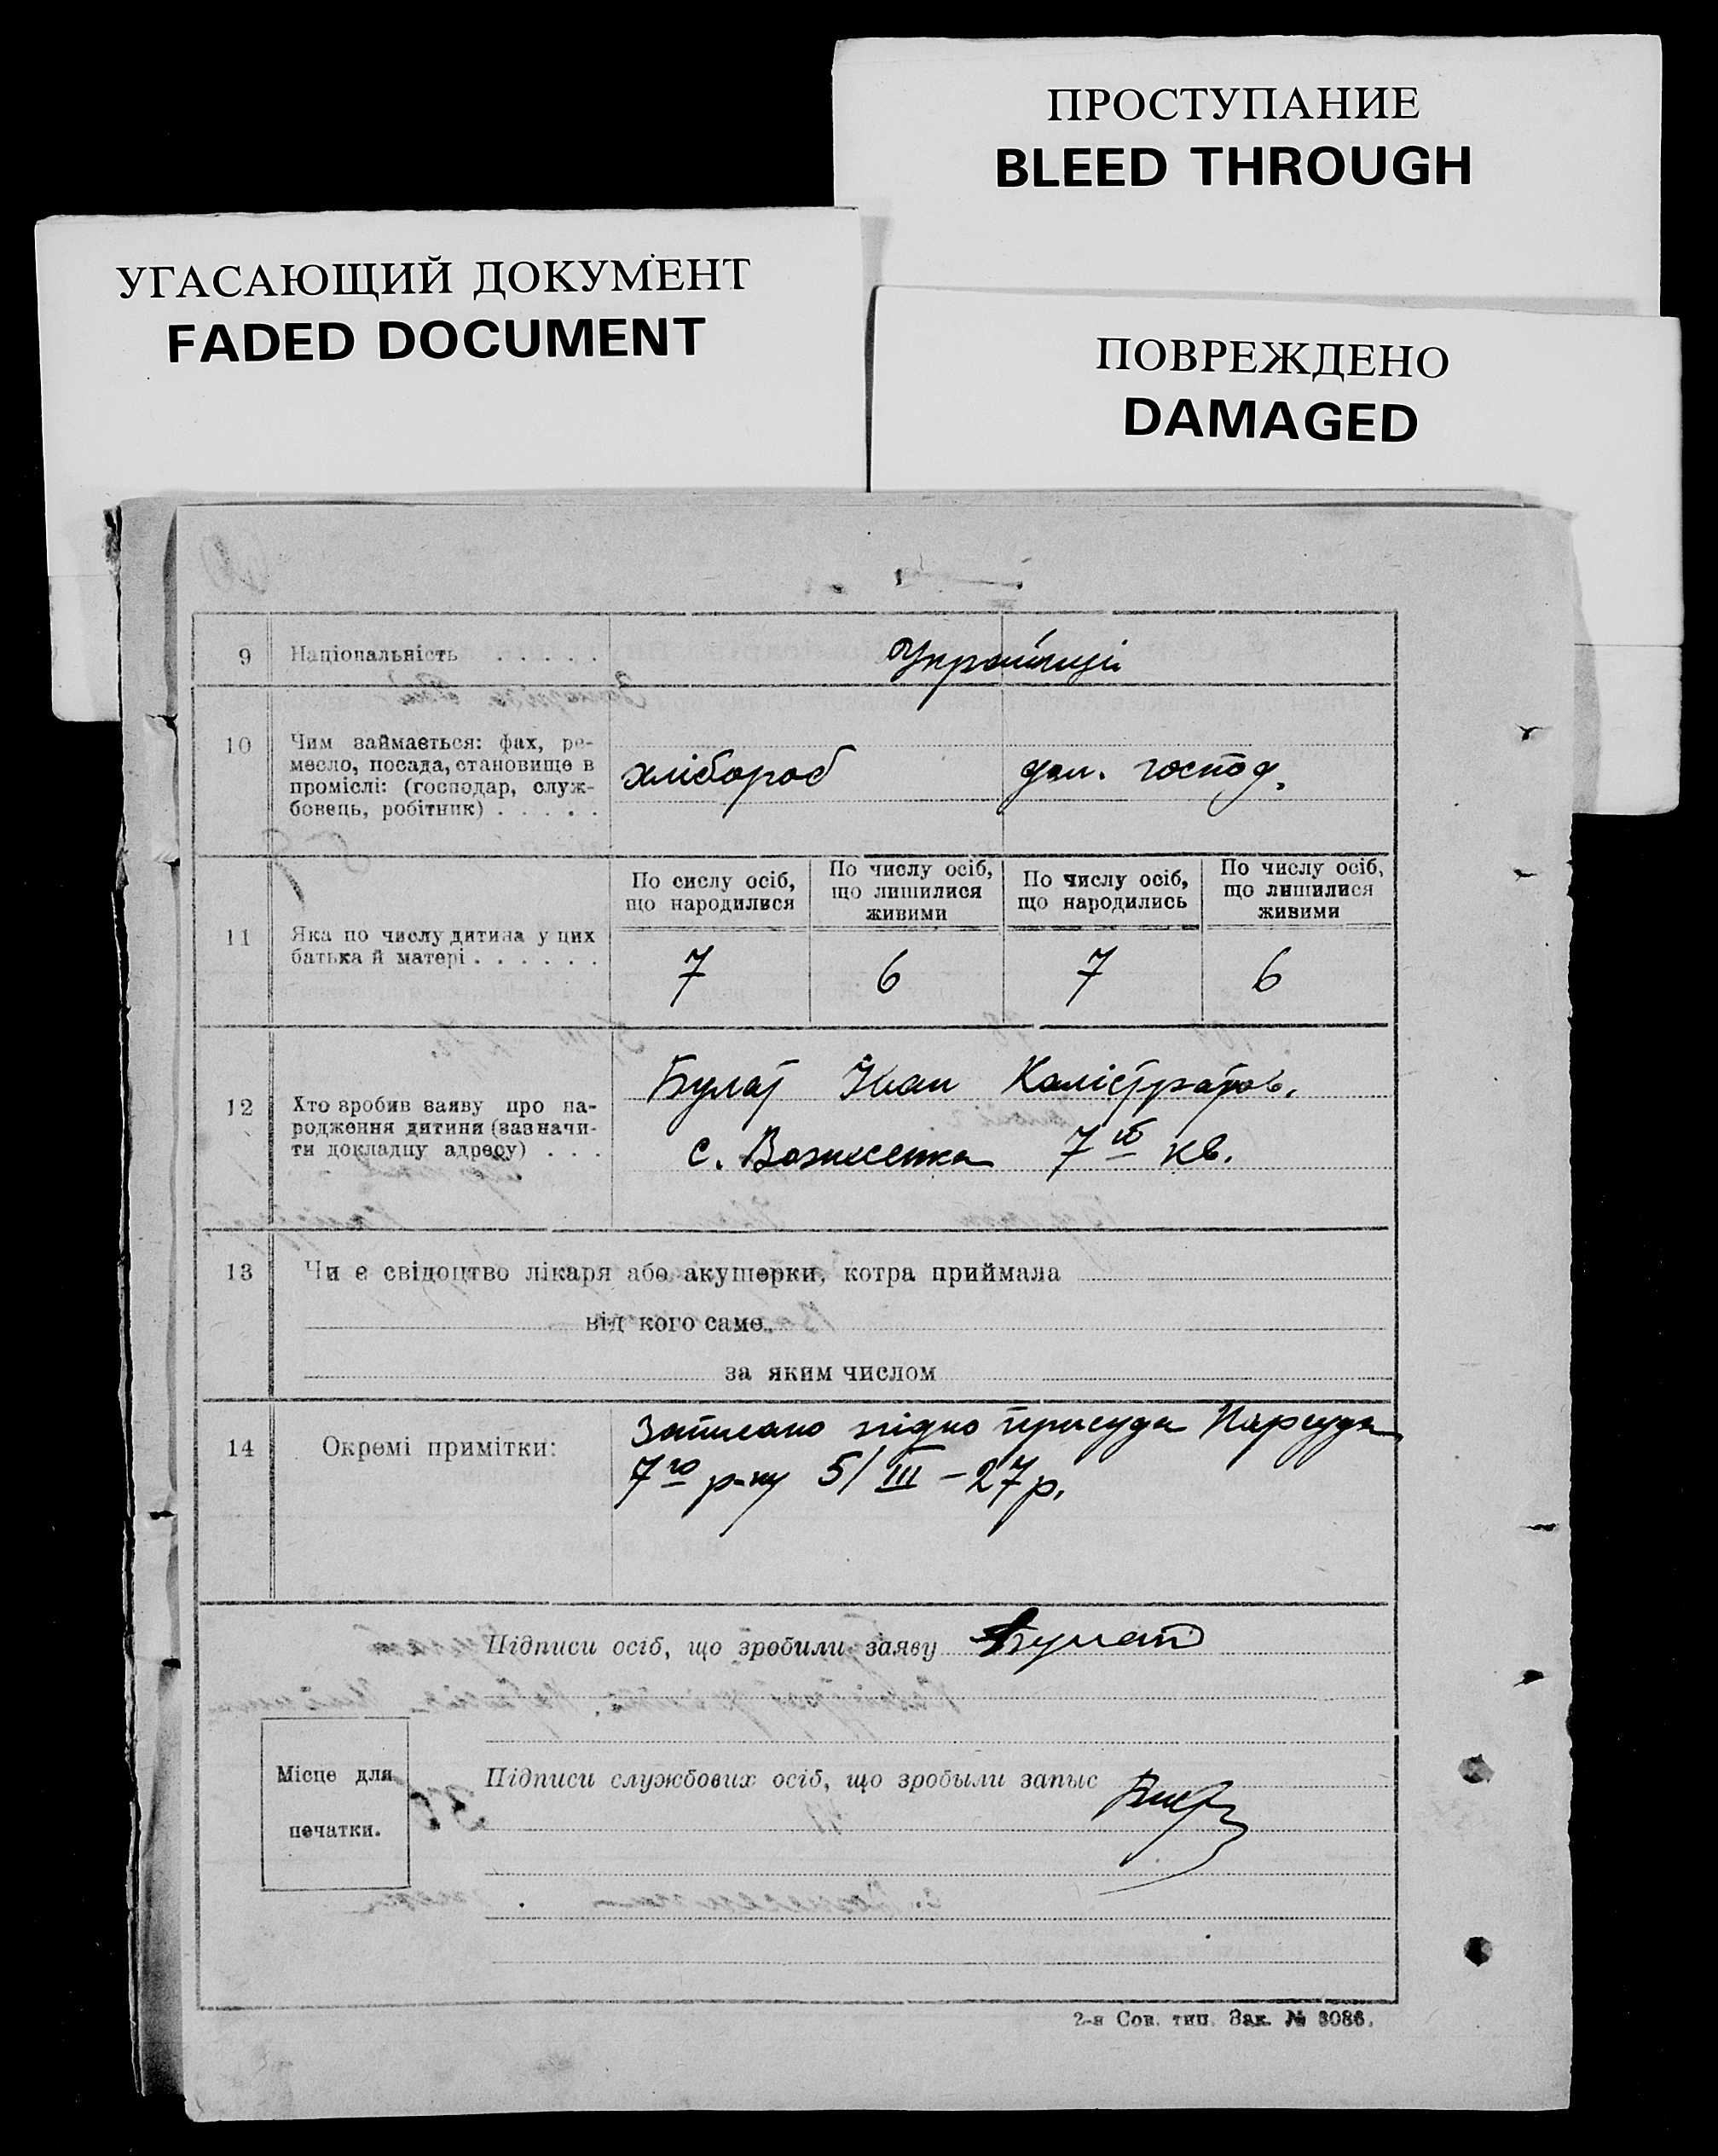 ПРОСТУПАНИЕ
BLEED THROUGH
УГАСАЮЩИЙ ДОКУМЕНТ
FADED DOCUMENT
ПОВРЕЖДЕНО
DAMAGED
9 Національність . . . . . Українці
10 Чим займається: фах, ре-
месло, посада, становище в
проміслі: (господар, служ-
бовець, робітник) . . . . .
хлібороб дом. господ.
По сислу осіб,
що народилися
По числу осіб,
що лишилися
живими
По числу осіб,
що народились
По числу осіб,
що лишилися
живими
11 Яка по числу дитина у цих
батька й матері . . . . . .
7 6 7 6
12 Хто зробив заяву про на-
родження дитини (зазначи-
ти докладну адресу) . . .
Булат Іван Калістратов.
с. Вознесенка 7й кв.
13 Чи є свідоцтво лікаря або акушерки, котра приймала
від кого саме
за яким числом
14 Окремі примітки:
Записано згідно присуда Нарсуда
7го р-ну 5/III – 27 р.
Підписи осіб, що зробили заяву Булат
Місце для
печатки.
Підписи службових осіб, що зробыли запыс
2-я Сов. тип. Зак. № 3086.